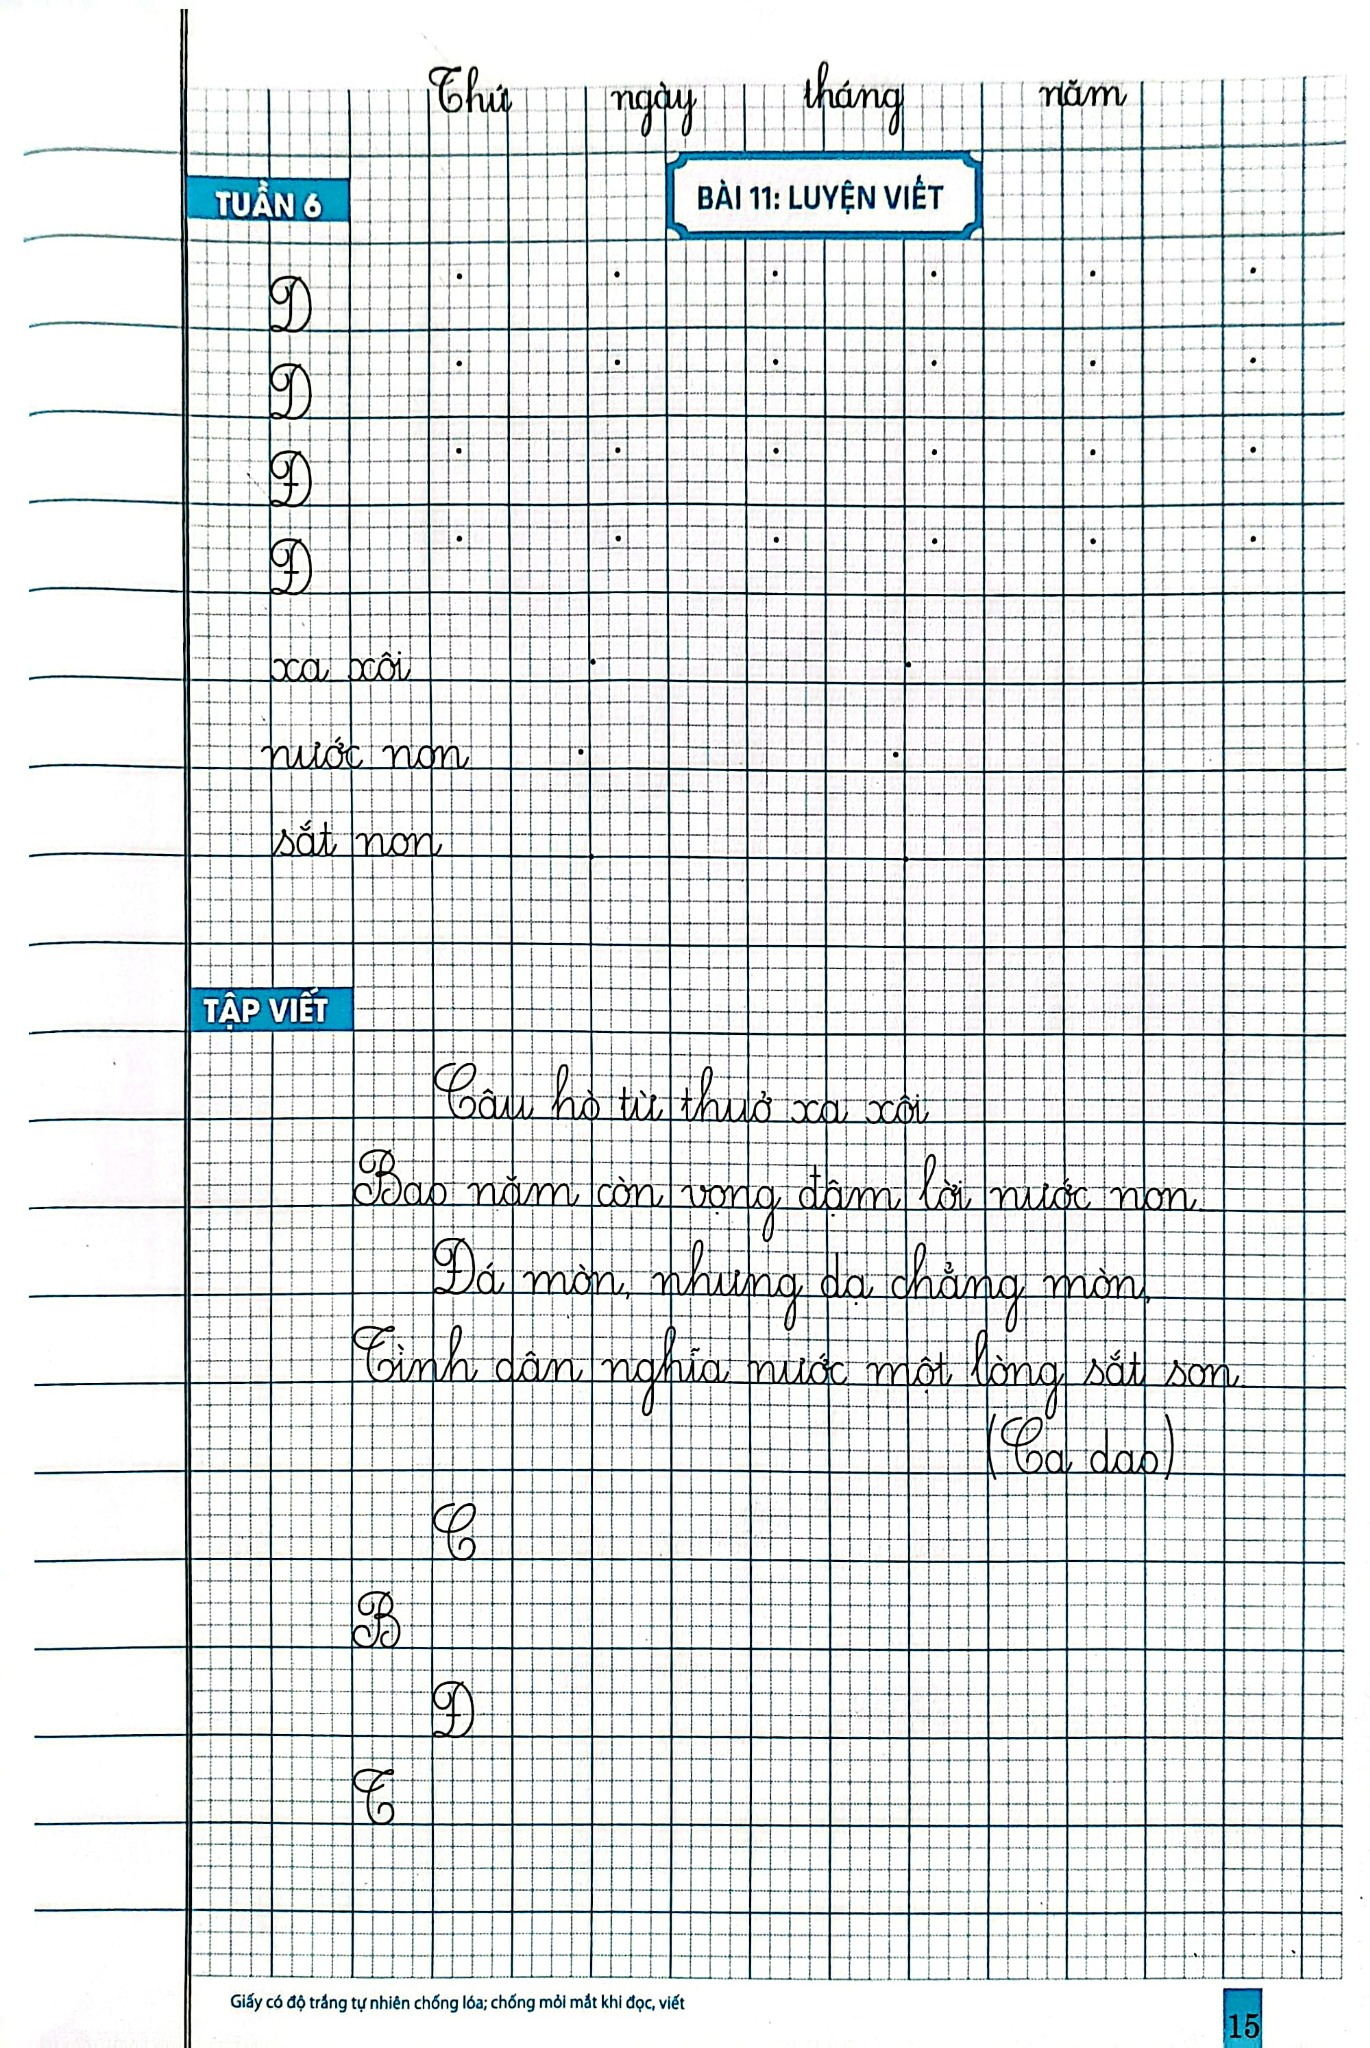 Thứ ngày tháng năm
TUẦN 6
BÀI 11: LUYỆN VIẾT
D
D
Đ
Đ
xa xôi
nước non
sắt non
TẬP VIẾT
Câu hò từ thuở xa xôi
Bao năm còn vọng đậm lời nước non
Đá mòn, nhưng dạ chẳng mòn,
Tình dân nghĩa nước một lòng sắt son
(Ca dao)
C
B
Đ
T
Giấy có độ trắng tự nhiên chống lóa; chống mỏi mắt khi đọc, viết
15